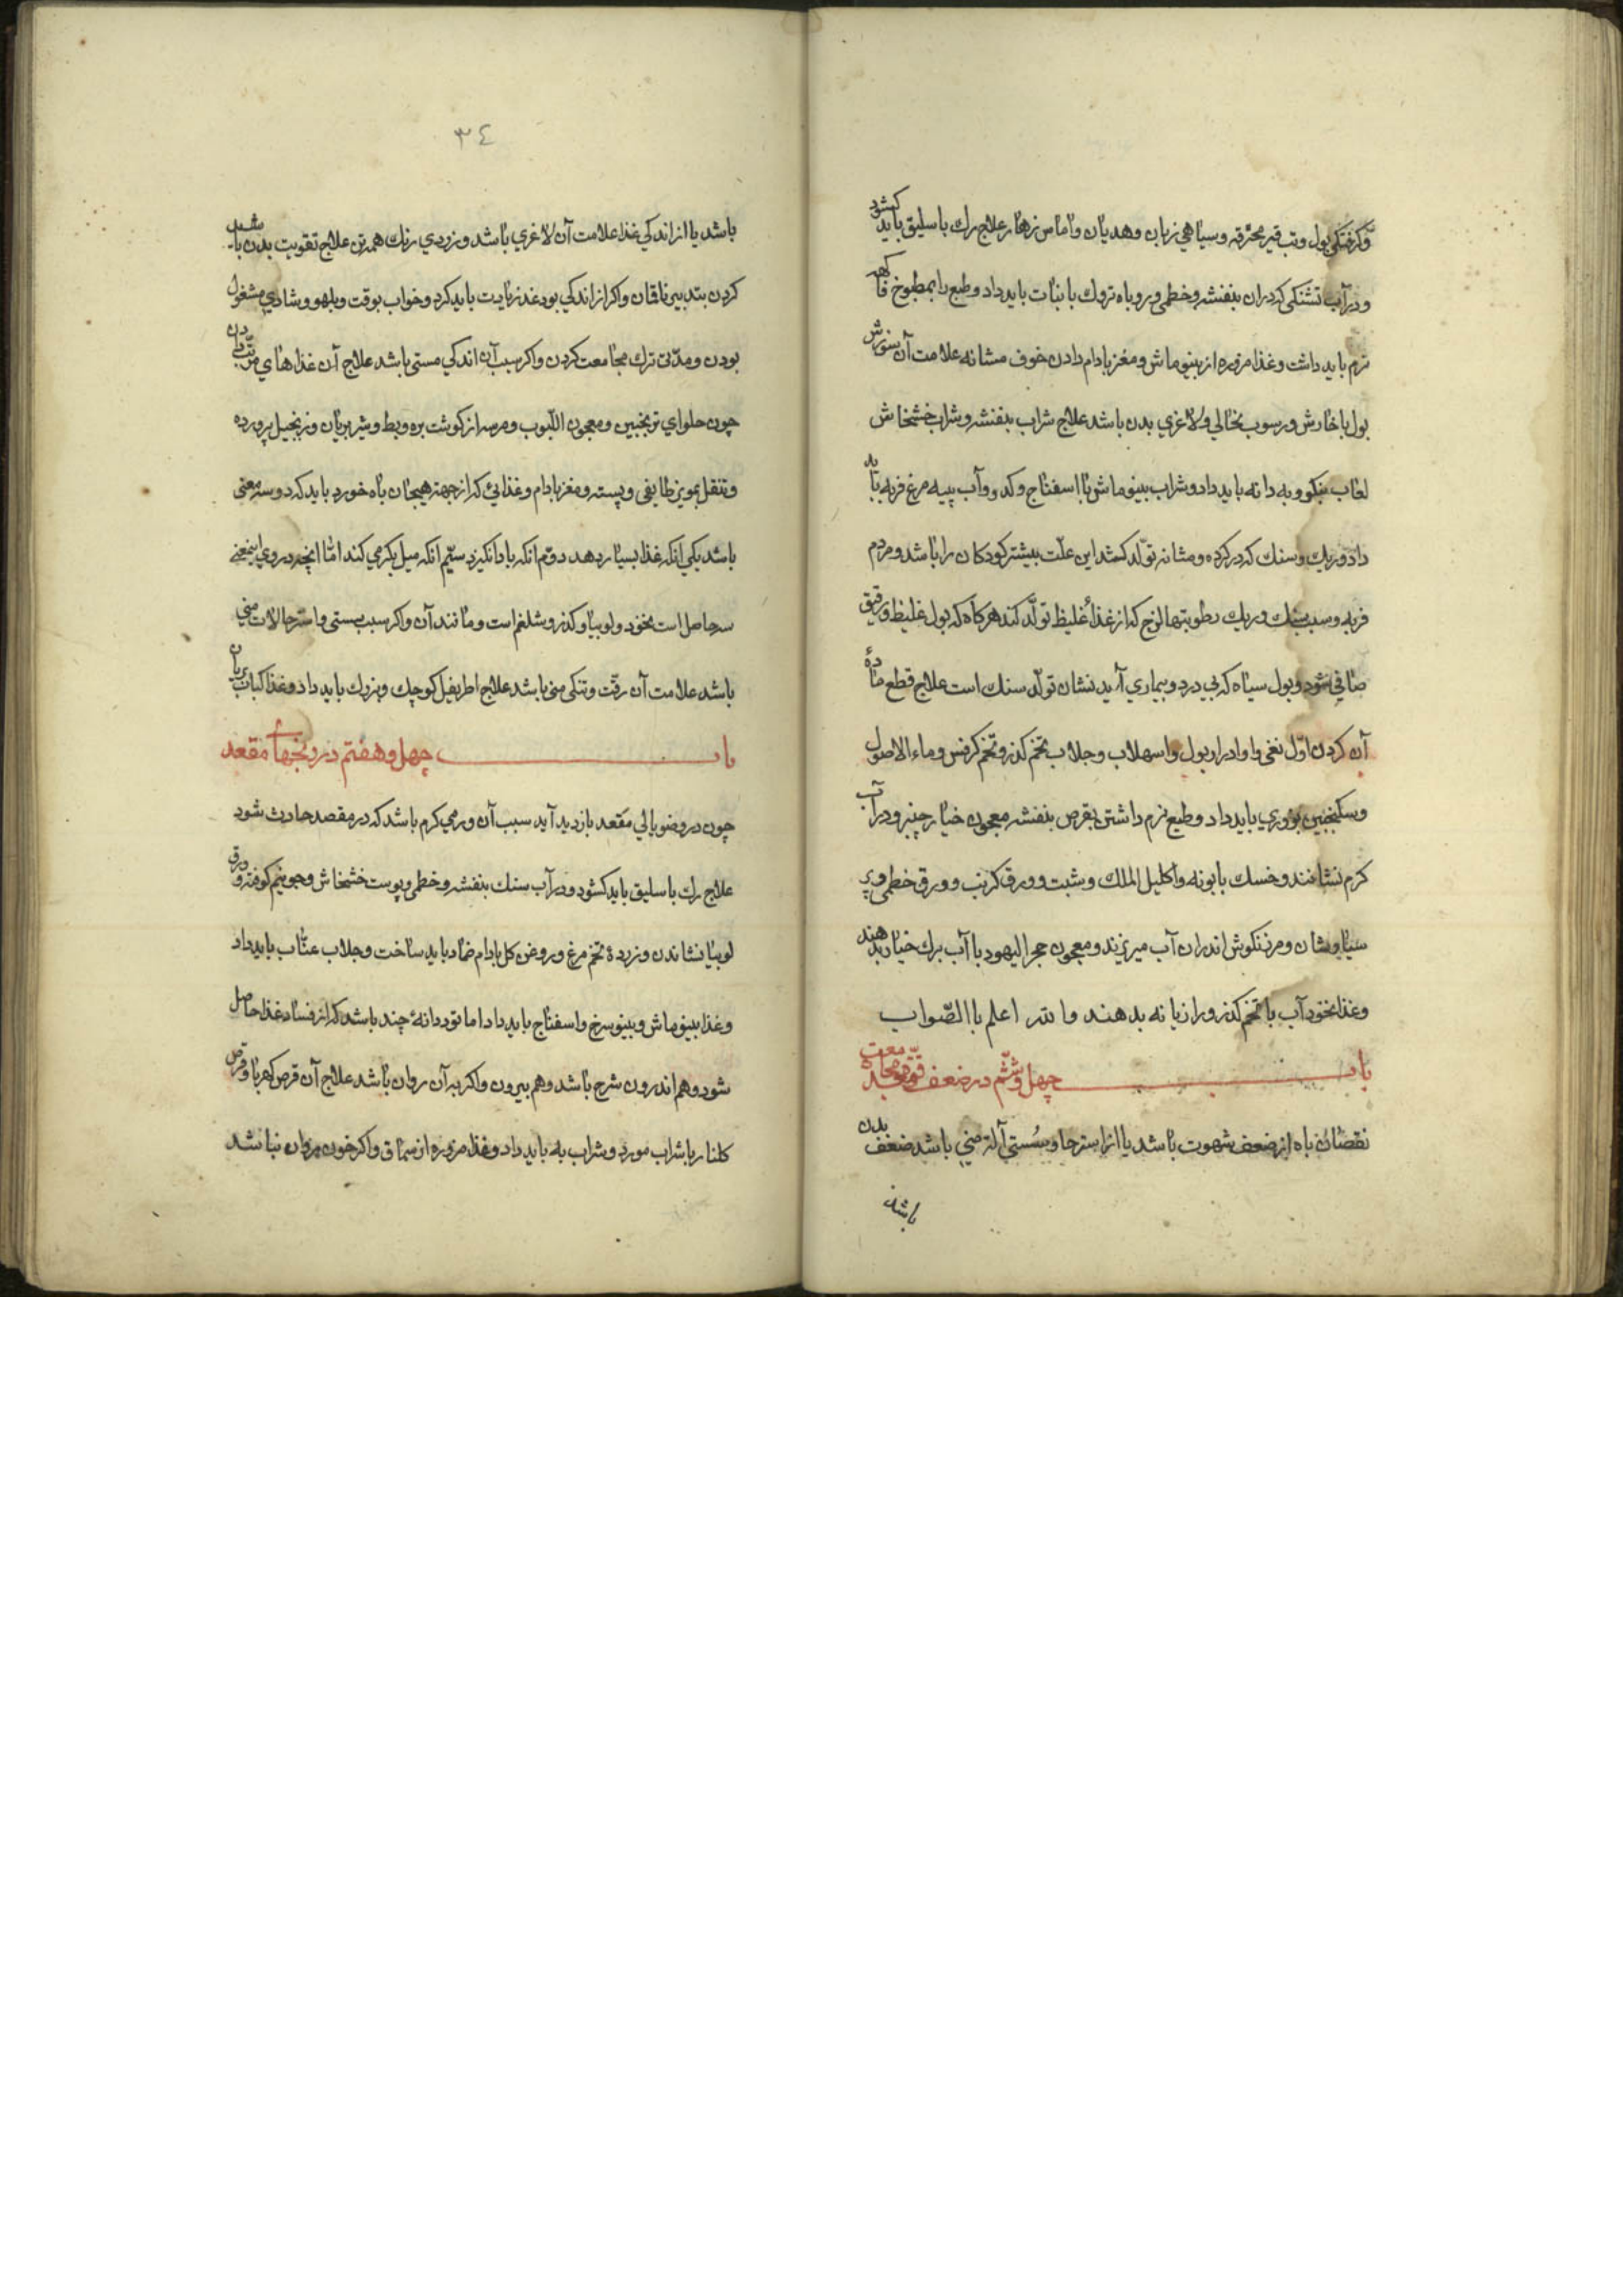 وکرفتکی بول وتب قیر محرقه وسیاهی زبان وهدیان واماس زهار علاج رك باسلیق باید کشود
ودر آب تشنکی که دران بنفشه وخطمی وروباه تروك بابنات باید داد وطبع رابمطبوخ فاکهه
نرم باید داشت وغذا مزوره از بینو ماش ومغز بادام دادن خوف مشانه علامت آن سوزش
بول باخارش ورسوب نخالی ولاغری بدن باشد علاج شراب بنفشه وشراب خشخاش
لعاب بنکو وبه دانه باید داد وشراب بینو ماش با اسفناج وکدو وآب پیه مرغ فربه باید
داد وریك وسنك که در کرده ومشانه تولّد کند این علّت بیشتر کودکان را باشد ومردم
فربه وسبب سنك وریك رطوبتها لزج که از غذاء غلیظ تولّد کند هرکاه که بول غلیظ ورقیق
صافی شود وبول سیاه که بی درد وبیماری آید نشان تولّد سنك است علاج قطع مادهٔ
آن کردن اوّل نغی وادرار بول واسهلاب وجلاب بتخم کذر وتخم کرفس وماء الاصول
وسکنجبین بزوری باید داد وطبع نرم داشتن بقرص بنفشه معجون خیار چنبر ودر آب
کرم نشانند وخسك بابونه واکلیل الملك وشبت وورق کرنب وورق خطمی وپر
سیاوشان ومرزنکوش اندران آب میریزند ومعجون حجر الیهود باآب برك خیار بدهند
وغذا نخود آب باتخم کذر ورازیانه بدهند والله اعلم باالصّواب
باب چهل وششم در ضعف قوّه مجامعت
نقصان باه از ضعف شهوت باشد یا از استرحا وسستی آلة منی باشد ضعف بدن
باشد
٣٤
باشد یا از اندکی غذا علامت آن لاغری باشد وزردی رنك همه تن علاج تقویت بدن باید
کردن بتدبیر ناقان واکر از اندکی بود غذ زیادت باید کرد وخواب بوقت وبلهو وشادی مشغول
بودن ومدّتی ترك مجامعت کردن واکر سبب آن اندکی مستی باشد علاج آن غذاهای
چون حلوای ترنجبین ومعجون اللبوب ومرسه از کوشت بره وبط وشیر بریان وزنجبیل پرورده
وتنقل بمویز طایفی وپسته ومغز بادام وغذایی که از جهة هیجان باه خورد باید که دوسه معنی
باشد یکی انکه غذا بسیار دهد دوّم انکه باد انکیزد سیّم انکه میل بکرمی کند امّا انچه دروی این معنی
سه حاصل است نخود ولوبیا وکذر وشلغم است ومانند آن واکر سبب سستی واسترحا الات منی
باشد علامت آن رقّت وتنکی منی باشد علاج اطریفل کوچك وبزرك باید داد وغذا کباب بریان
باب چهل وهفتم در رنجهاء مقعد
چون در وضو بالی مقعد بازدید آید سبب آن ورمی کرم باشد که در مقصد حادث شود
علاج رك باسلیق باید کشود ودر آب سنك بنفشه وخطمی وپوست خشخاش وجو نیم کوفته وورق
لوبیا نشاندن وزردهٔ تخم مرغ وروغن کل بادام ضماد باید ساخت وجلاب عنّاب باید داد
وغذا بینو ماش وبینو سرخ واسفناج باید داد اما تود دانهٔ چند باشد که از فساد غذا حاصل
شود وهم اندرون شرح باشد وهم بیرون واکر به آن روان باشد علاج آن قرص کهربا وقرص
کلنار باشراب مورد وشراب به باید داد وغذا مزوره از سماق واکر خون روان نباشد